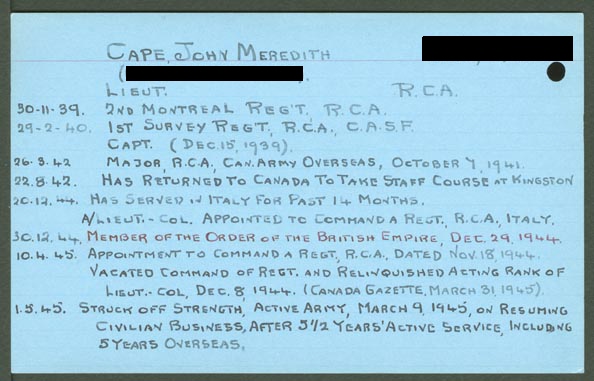 CAPE, JOHN MEREDITH
LIEUT. R.C.A.
30-11-39. 2ND MONTREAL REG'T, R.C.A.
29-2-40. 1ST SURVEY REG'T, R.C.A., C.A.S.F.
CAPT. (DEC. 15, 1939).
26-3-42 MAJOR, R.C.A., CAN. ARMY OVERSEAS, OCTOBER 7, 1941.
22.8.42. HAS RETURNED TO CANADA TO TAKE STAFF COURSE AT KINGSTON
20.12.44. HAS SERVED IN ITALY FOR PAST 14 MONTHS.
A/LIEUT.-COL. APPOINTED TO COMMAND A REGT., R.C.A., ITALY.
30.12.44. MEMBER OF THE ORDER OF THE BRITISH EMPIRE, DEC. 29, 1944.
10.4.45. APPOINTMENT TO COMMAND A REGT, R.C.A., DATED NOV. 18, 1944.
VACATED COMMAND OF REGT. AND RELINQUISHED ACTING RANK OF
LIEUT.-COL, DEC. 8, 1944. (CANADA GAZETTE, MARCH 31, 1945).
1.5.45. STRUCK OFF STRENGTH, ACTIVE ARMY, MARCH 9, 1945, ON RESUMING
CIVILIAN BUSINESS, AFTER 5 1/2 YEARS' ACTIVE SERVICE, INCLUDING
5 YEARS OVERSEAS.